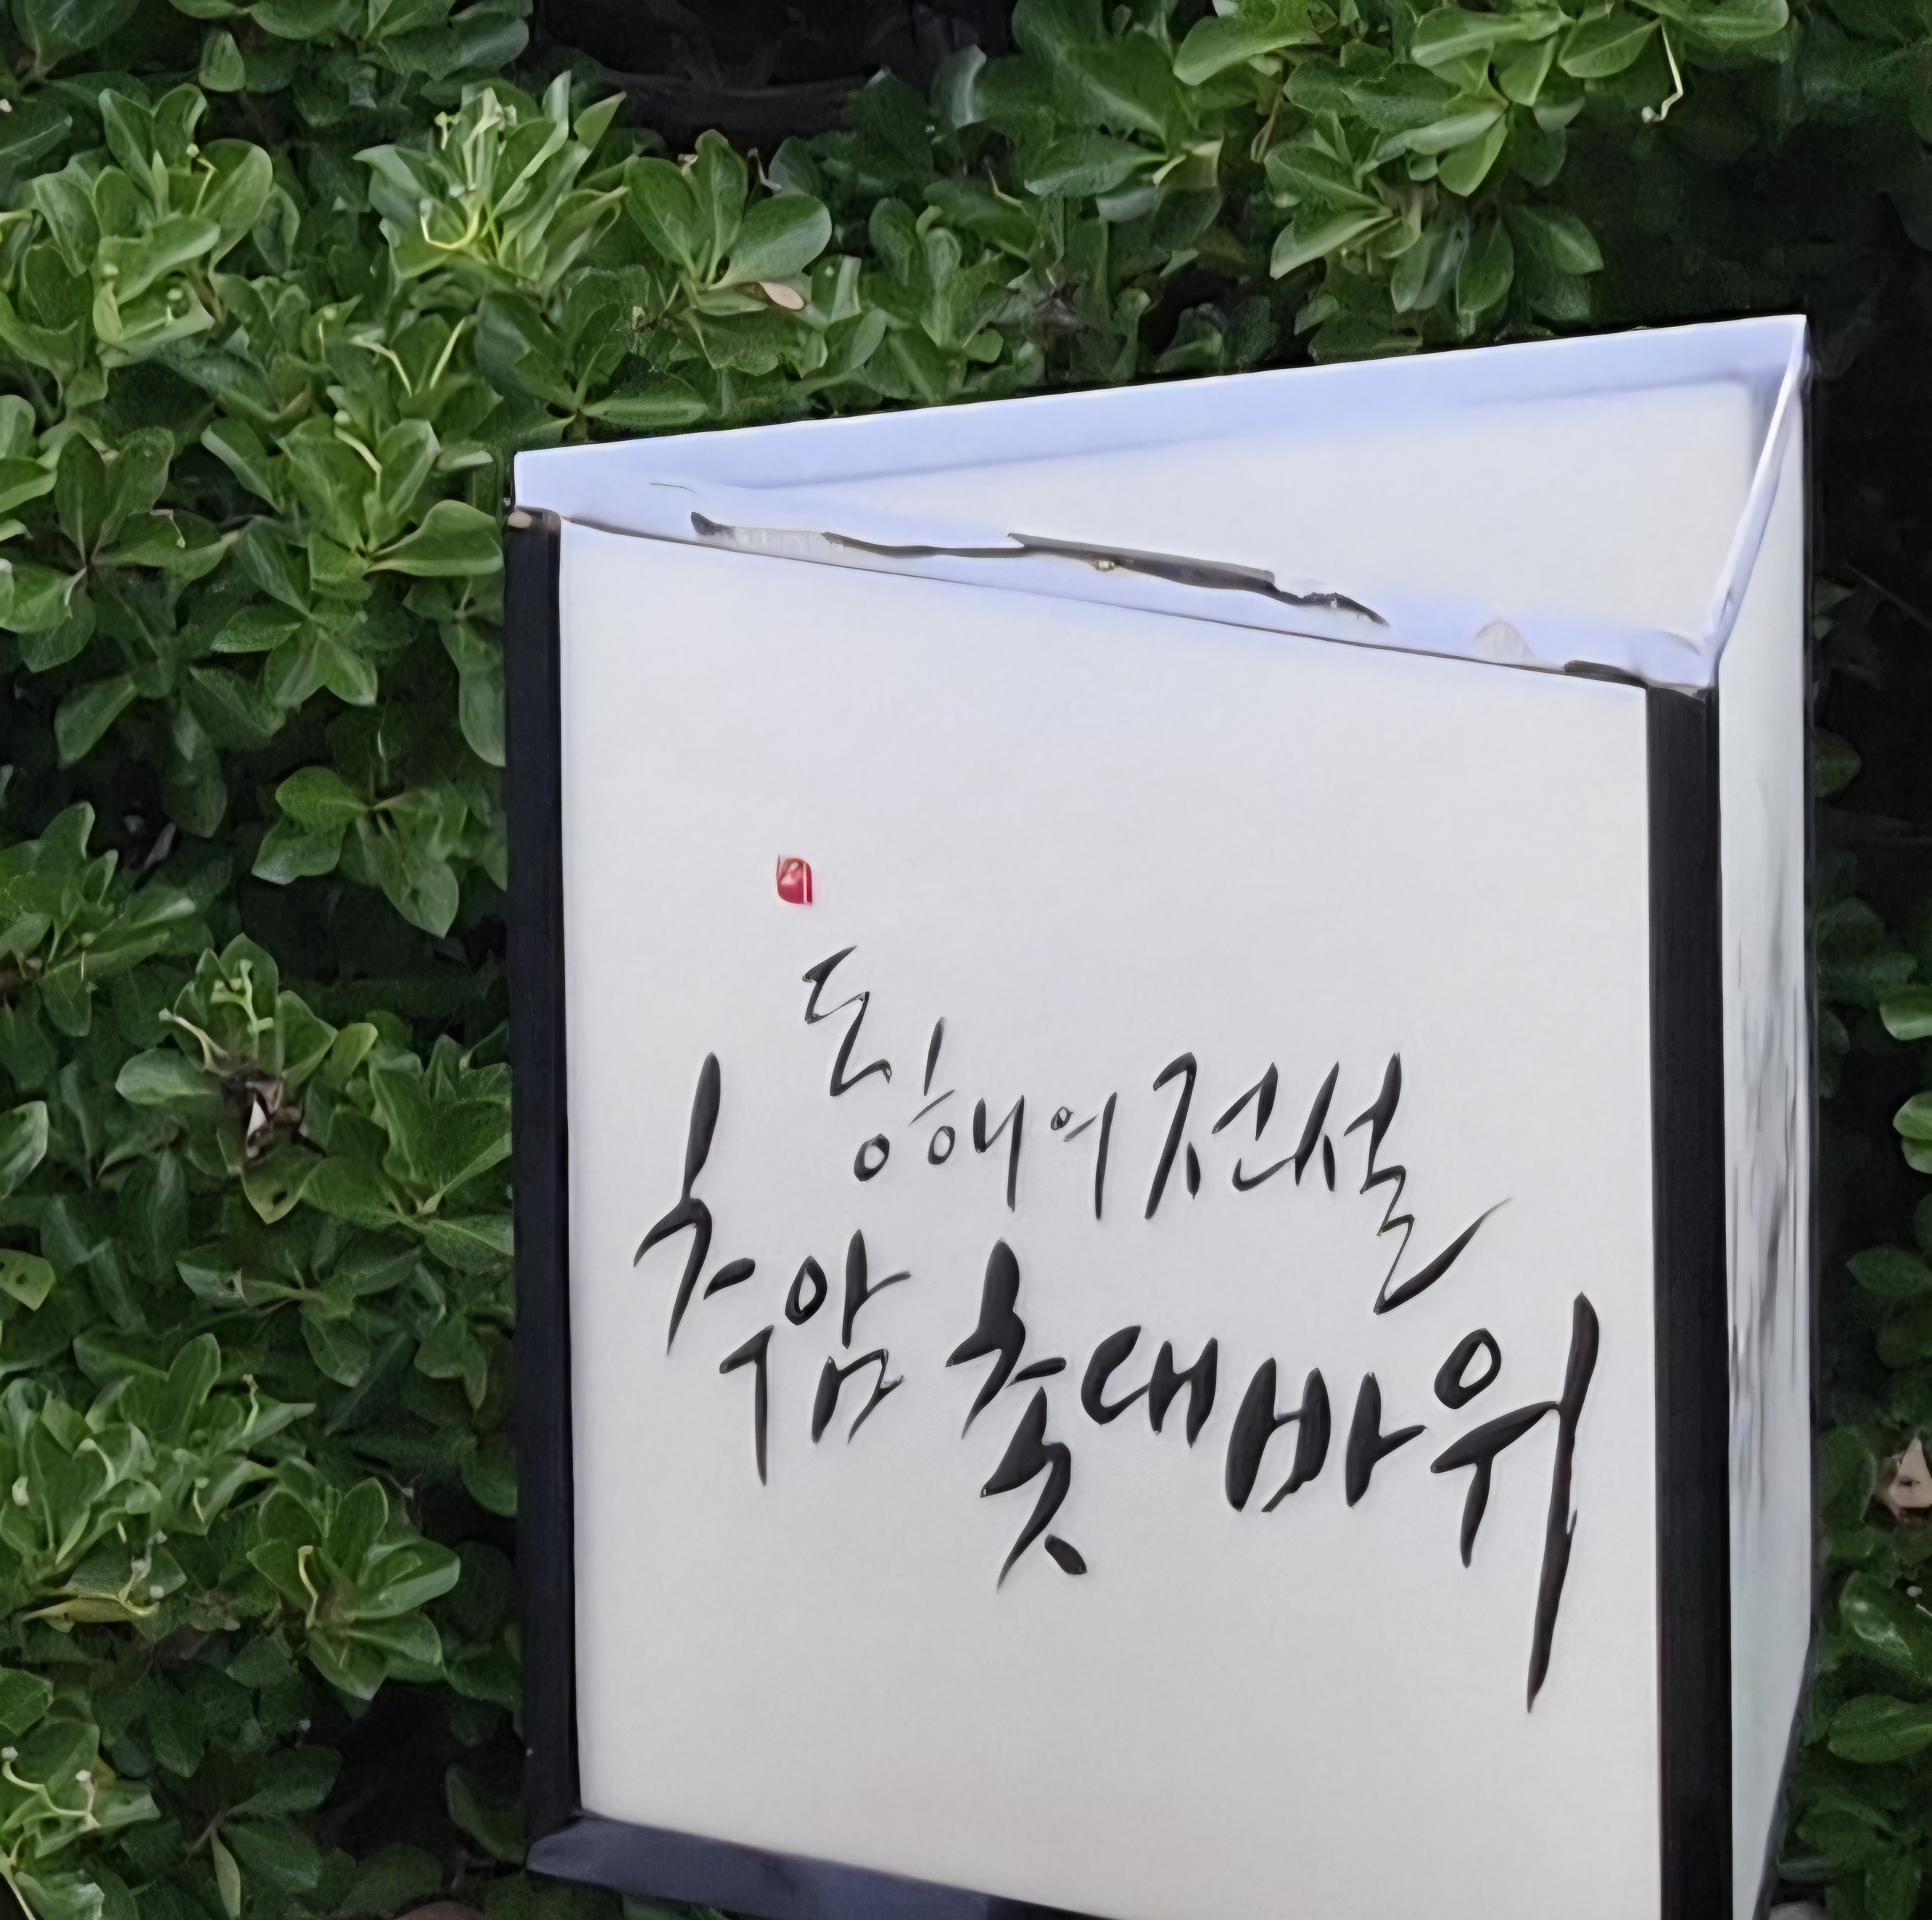 동해의 전설
추암 촛대바위